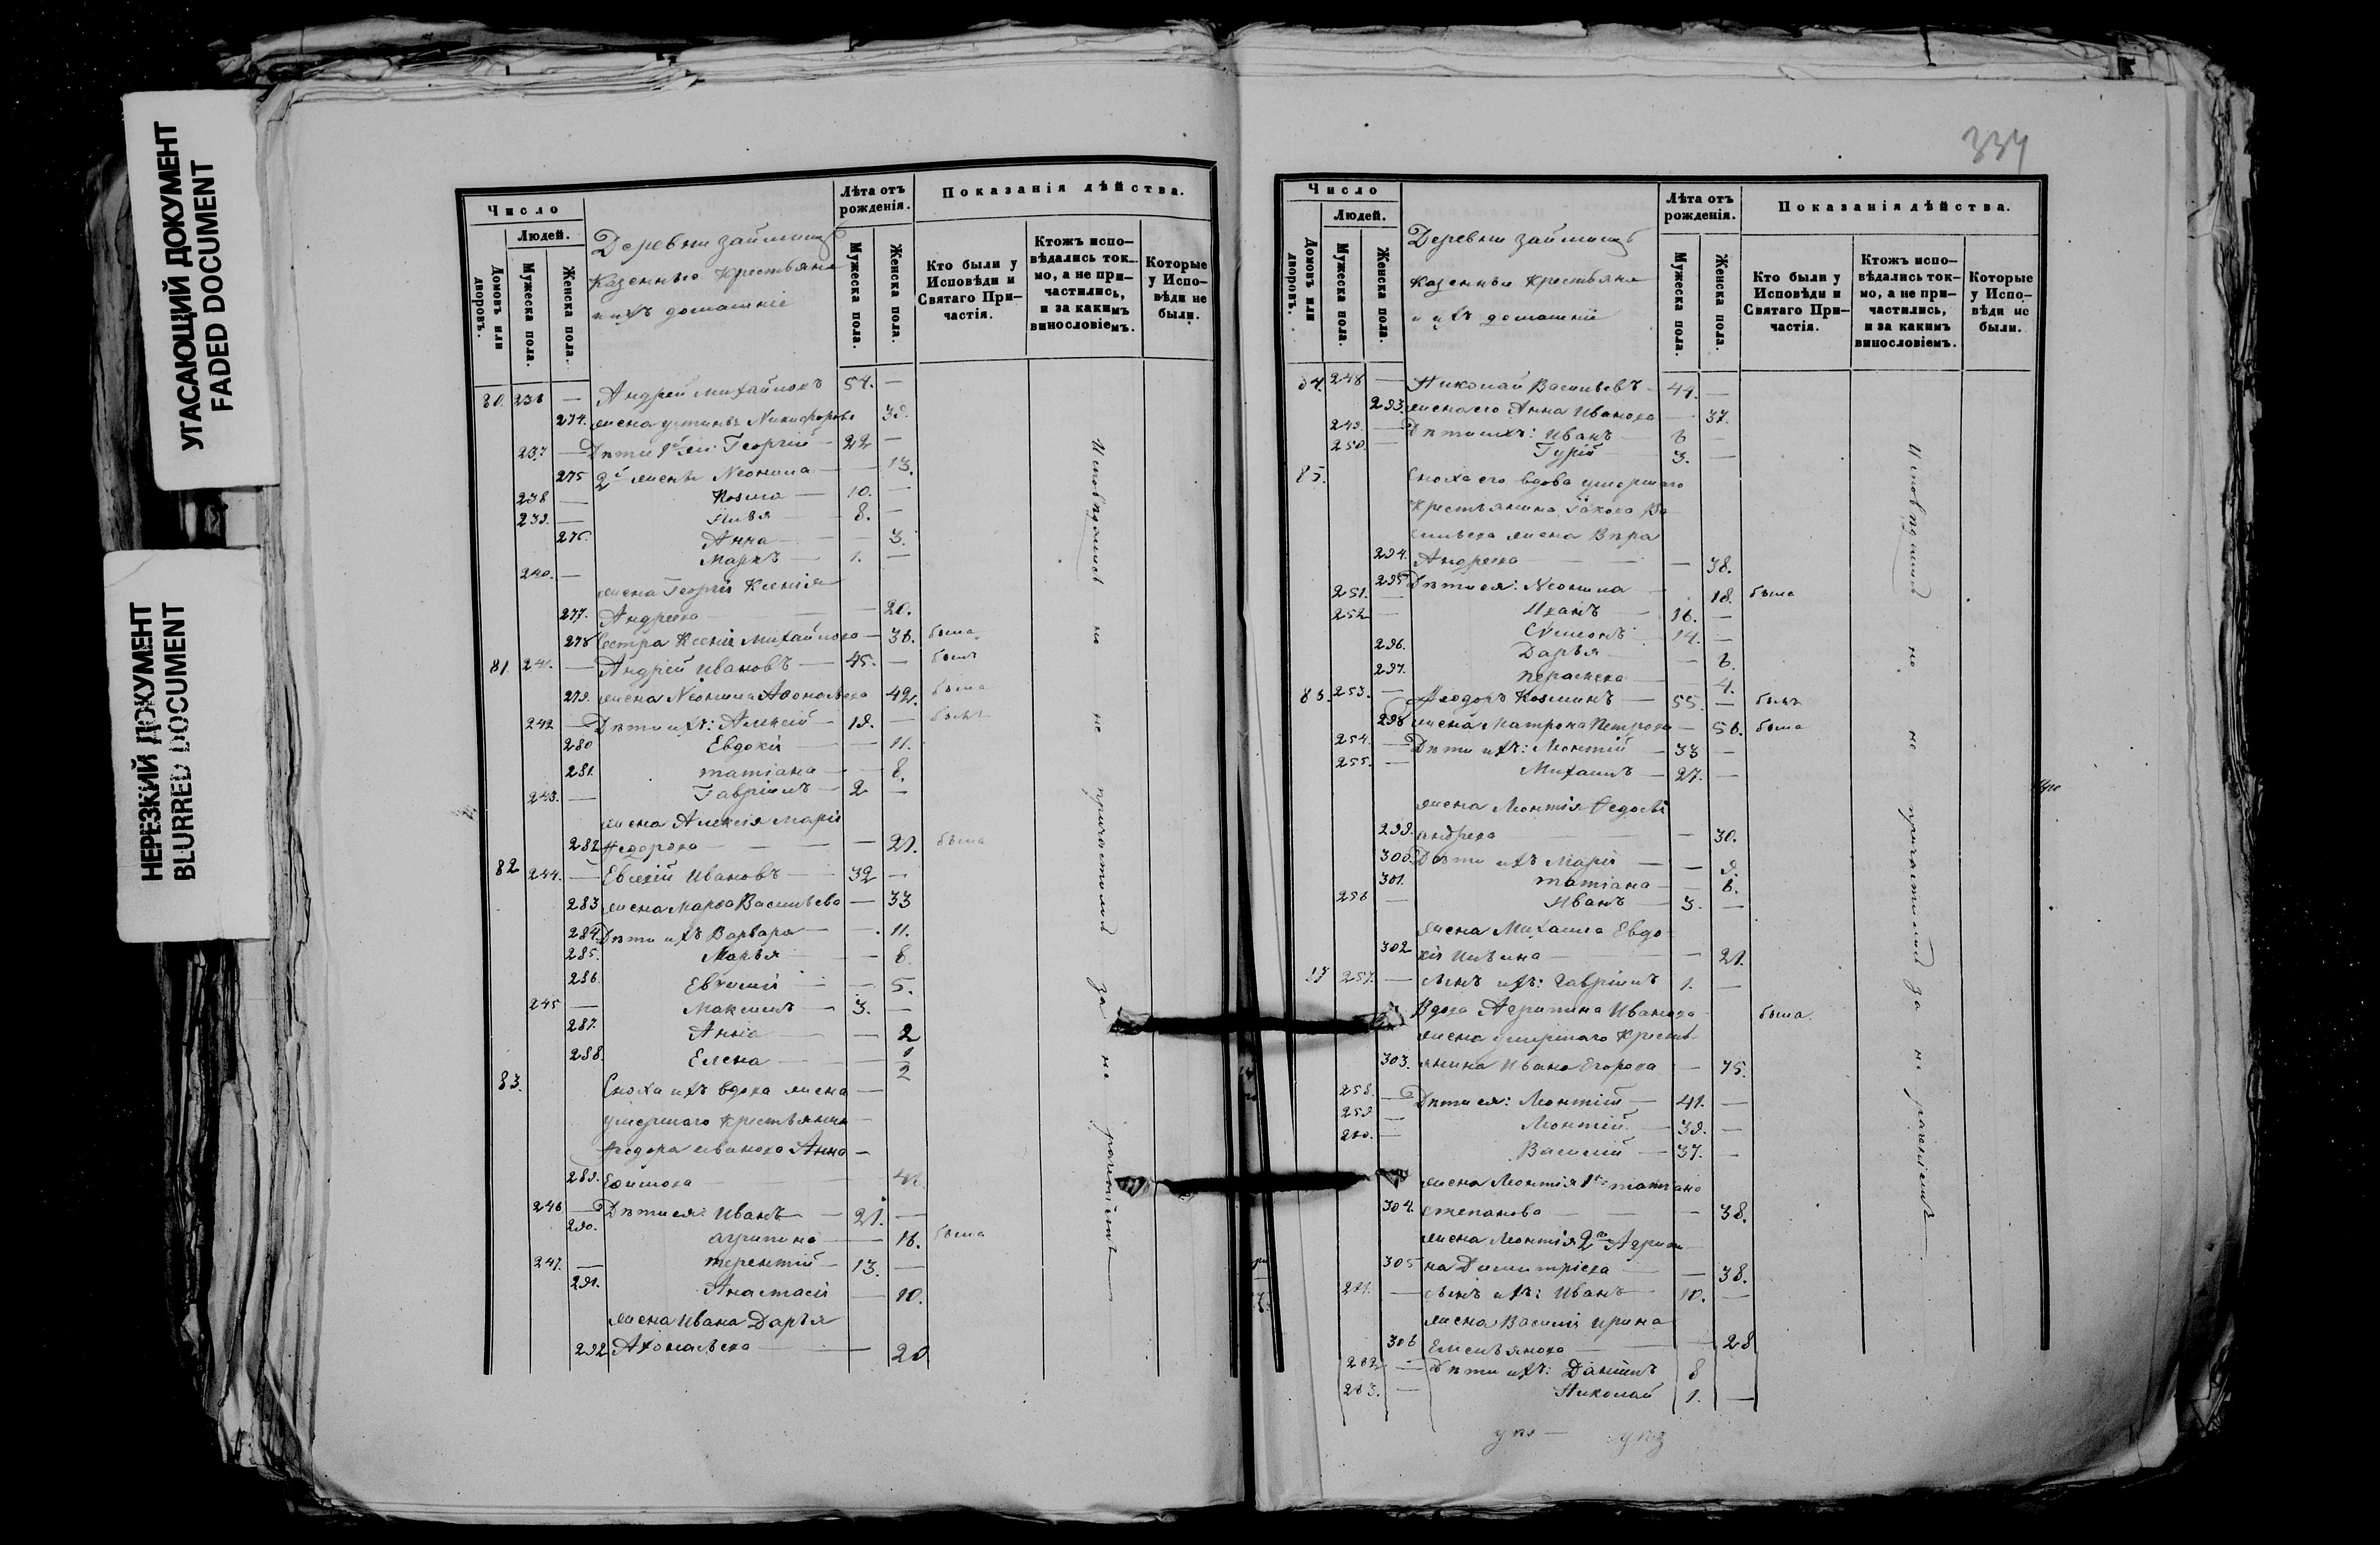 УГАСАЮЩИЙ ДОКУМЕНТ
FADED DOCUMENT
НЕРЕЗКИЙ ДОКУМЕНТ
BLURRED DOCUMENT
Число
Людей.
Домовъ или дворовъ.
Мужеска пола.
Женска пола.
Деревни
Казенные Крестьяне
и ихъ домашніе
Лѣта отъ рожденія.
Мужеска пола.
Женска пола.
Показанія дѣйства.
Кто были у Исповѣди и Святаго При-частія.
Ктожъ испо-вѣдались ток-мо, а не при-частились, и за какимъ винословіемъ.
Которые у Испо-вѣди не были.
80. 236 — Андрей Михайловъ 54. —
274. жена Никифорова
237 — Дѣти 1й жены: Георгій — 22 —
275 2й жены Неонила — — 13.
238 — Козма — 10. —
239. — Илья 8. —
276. Анна — — 3.
240. — Маркъ — 1. —
жена Георгія Ксенія
277. Андреева — 20.
278 Сестра Ксенія Михайлова — 36. была
81. 241. — Андрей Ивановъ — 45. — былъ
279. жена Неонила 42. была
242 — Дѣти ихъ: Алексій — 19. — былъ
280 Евдокія — — 11.
281. татіана — 8.
243. — Гавріилъ — 2 —
жена Алексія Марія
282 Федорова — — — 21. была
82 244. — Ивановъ — 32 —
283 жена Марфа Васильева — 33
284. Дѣти ихъ Варвара — — 11.
285. Марья — 8.
286. — 5.
245 — Максимъ — 3. —
287. Анна — — 2
288. Елена — — 1/2
83. Сноха ихъ вдова жена —
умершаго Крестьянина —
Федора Иванова Анна —
289. Ефимова
246 — Дѣти ея: Иванъ — 21. —
290. агрипина — 16. была
247. — терентій — 13. —
291. Анастасія — 10.
жена Ивана Дарья
292 —
Исповѣдались но не причастились за не
334
Число
Людей.
Домовъ или дворовъ.
Мужеска пола.
Женска пола.
Деревни
Казенные Крестьяне
и ихъ домашніе
Лѣта отъ рожденія.
Мужеска пола.
Женска пола.
Показанія дѣйства.
Кто были у Исповѣди и Святаго При-частія.
Ктожъ испо-вѣдались ток-мо, а не при-частились, и за какимъ винословіемъ.
Которые у Испо-вѣди не были.
84. 248 — Николай Васильевъ —
293. жена его Анна Иванова 37.
249. — Дѣти ихъ: Иванъ — 6 —
250. — Гурій 3. —
85. Сноха его вдова умершаго
Крестьянина Іакова Ва
сильева жена Вѣра
294. Андреева — — 38.
295 Дѣти ея: Неонила 18. была
251. — Иванъ — 16. —
252 — Симеонъ 14. —
296. Дарья — 6.
297. 4.
253. — Феодоръ Козминъ — 55. — былъ
298 жена Матрона Петрова — 56. была
254. — Дѣти ихъ: Леонтій — 33 —
255. — Михаилъ — 27. —
жена Леонтія
299. андреева — 30.
300. Дѣти ихъ Марія — — 9.
301. татіана — — 6.
256 — Иванъ — 3. —
жена Михаила Евдо-
302 кія Ильина — 21.
257. — сынъ ихъ: Гавріилъ 1. —
Вдова Агрипина Иванова была
жена умершаго Кресть-
303. янина Ивана Егорова — 75.
258. — Дѣти ея: Леонтій — 41. —
259 — Леонтій. — 39. —
260. — Василій — 37. —
жена Леонтія 1го татіана
304. степанова — — 38.
жена Леонтія 2го Агрипи-
305 на Димитріева — 38.
261. — сынъ ихъ: Иванъ — 10. —
жена Василія Ирина
306 Емельянова — 28
262 — Дѣти ихъ: Даніилъ 8
263. — Николай 1. —
Исповѣдались но не причастились за не